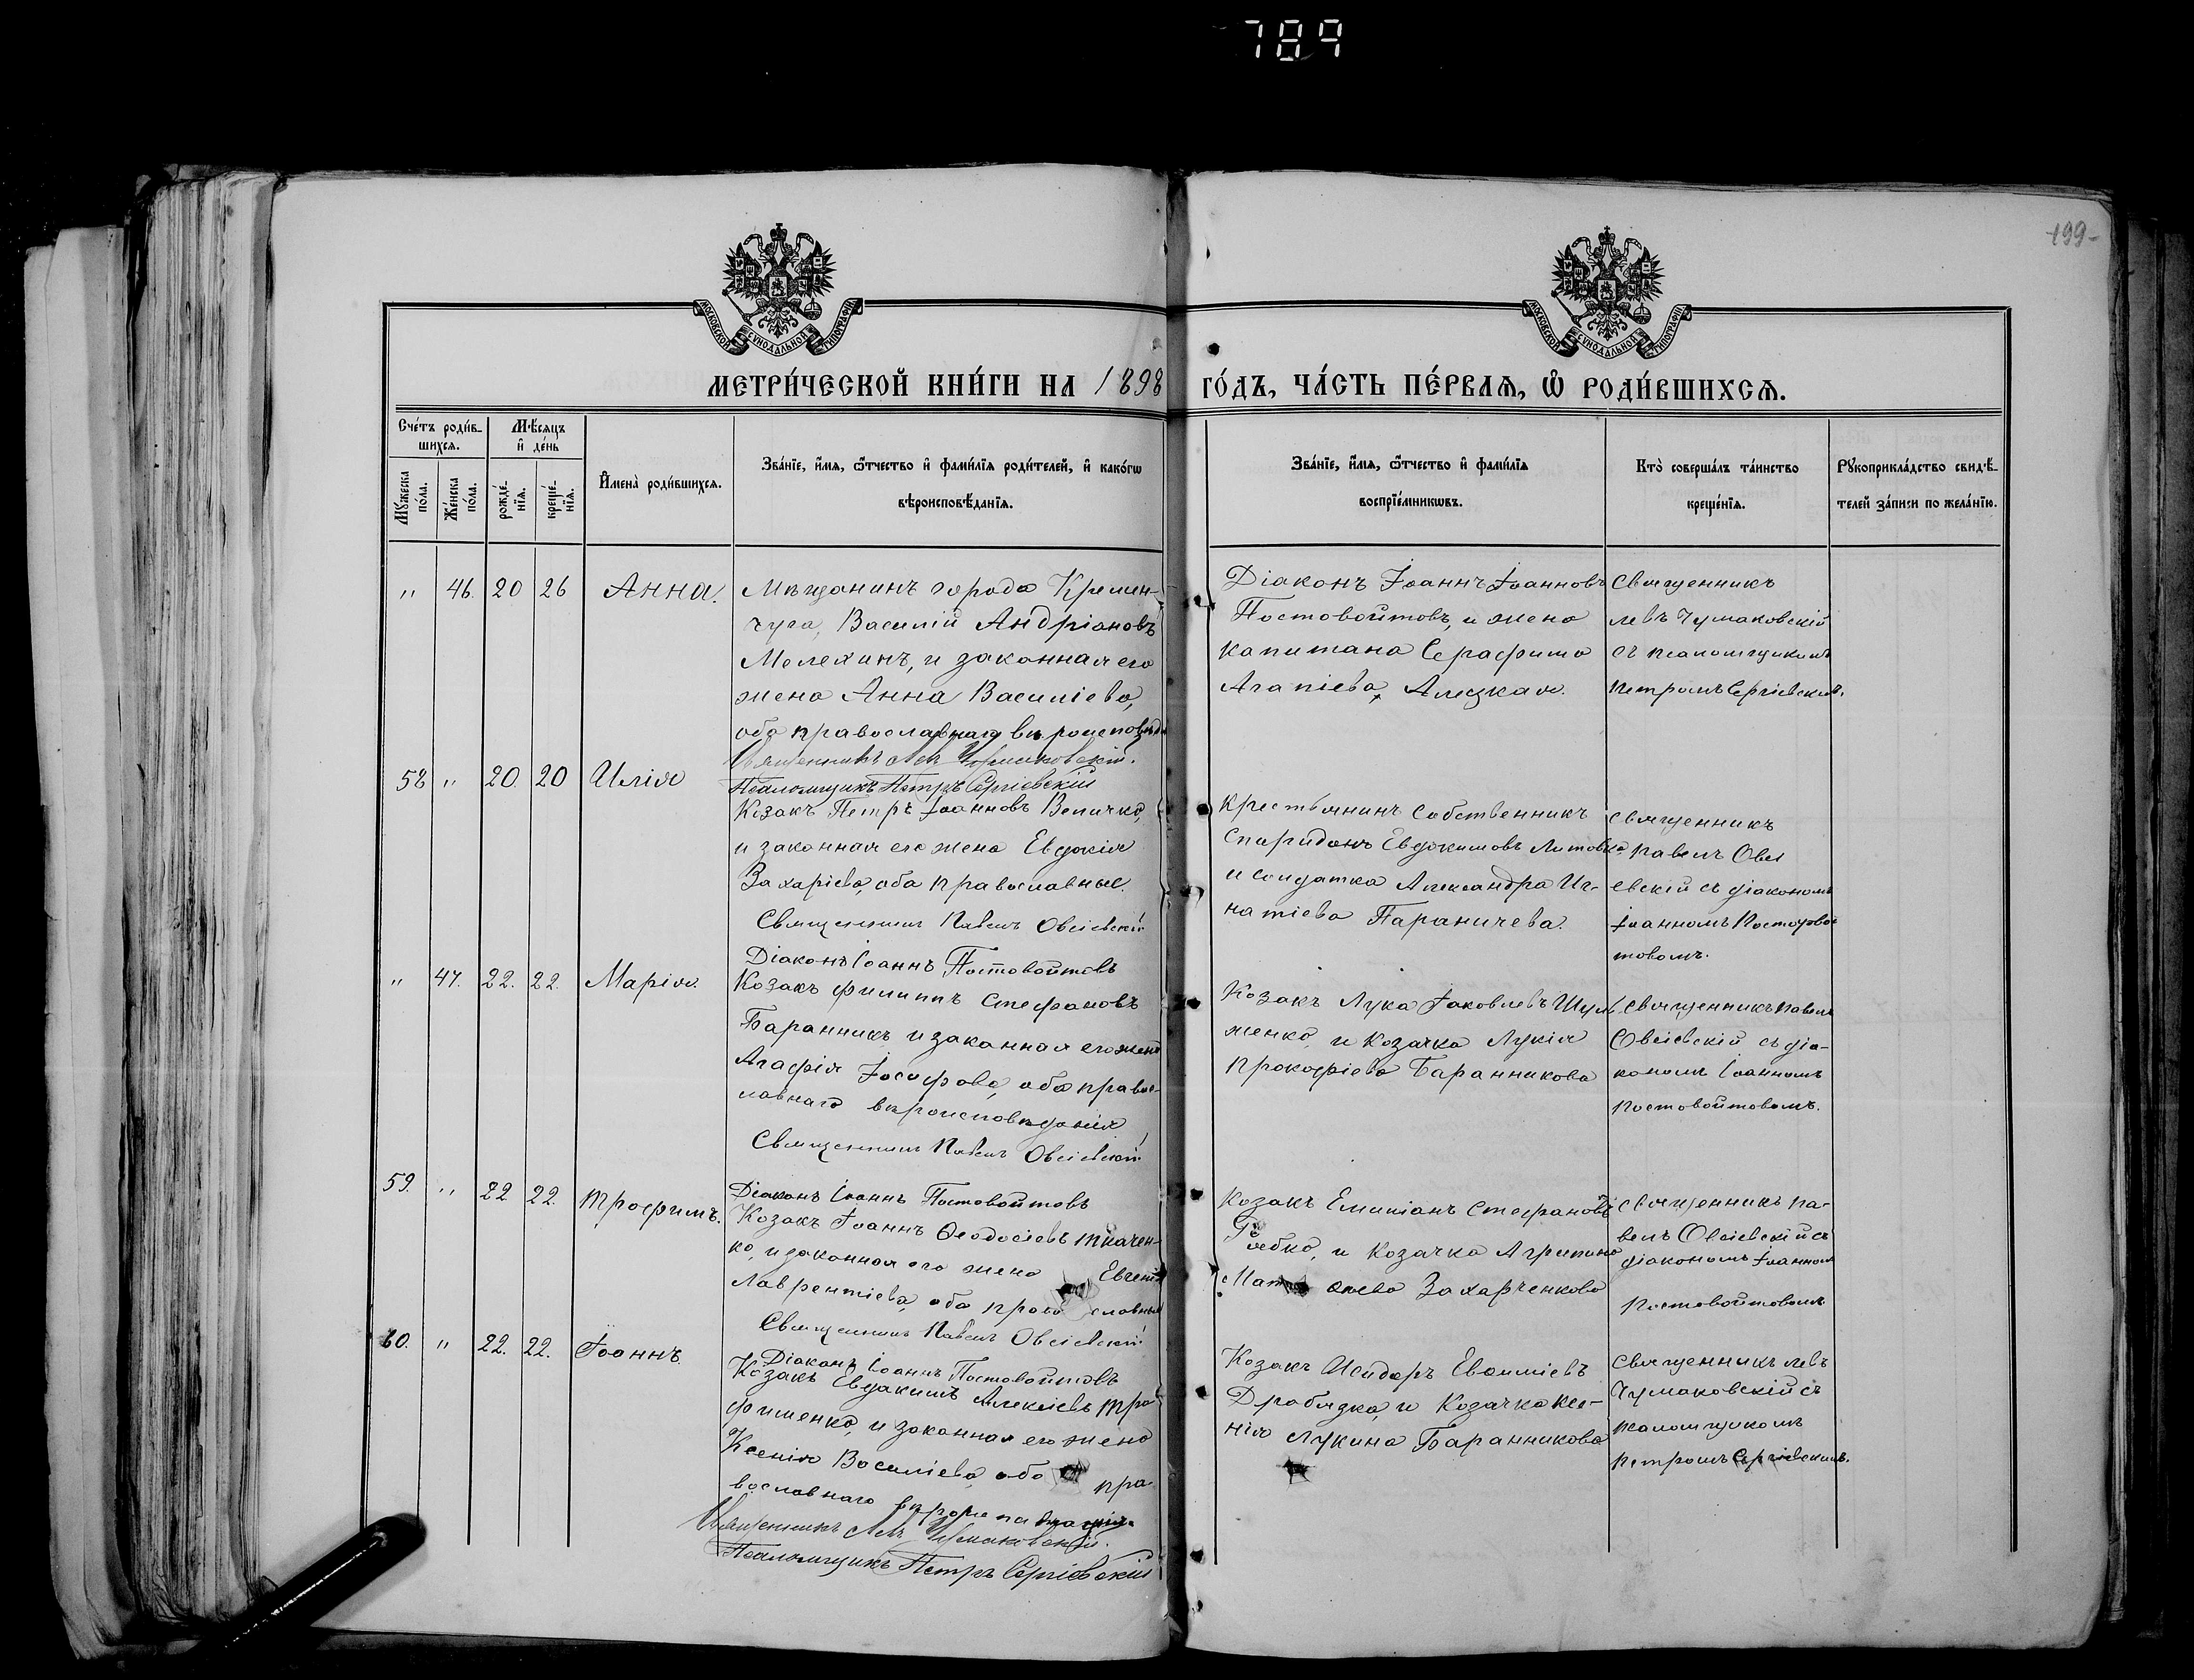 789
199
МОСКОВСКОЙ СѴНОДАЛЬНОЙ ТИПОГРАФІИ
МОСКОВСКОЙ СѴНОДАЛЬНОЙ ТИПОГРАФІИ
МЕТРИ́ЧЕСКОЙ КНИ́ГИ НА 1898 ГО́ДЪ, ЧА́СТЬ ПЕ́РВАЯ, Ѡ РОДИ́ВШИХСЯ.
Сче́тъ роди́в-
шихся.
Мѣсяцъ
и де́нь
Мꙋжеска по́ла.
Же́нска по́ла.
рожде́-
нїя.
креще́-
нїя.
И҆мена̀ роди́вшихся.
Зва́нїе, и҆́мя, ѻ҆́тчество и҆ фами́лїя роди́телей, и҆ како́гѡ
вѣроисповѣ́данїя.
Зва́нїе, и҆́мя, ѻ҆́тчество и҆ фами́лїя
воспрїе́мникѡвъ.
Кто̀ соверша́лъ та́инство
креще́нїя.
Рꙋкоприкла́дство свидѣ́-
телей за́писи по жела́нїю.
" 46. 20 26 Анна.
Мѣщанинъ города Кремен-
чуга, Василій Андріановъ
Мелехинъ, и законная его
жена Анна Василіева,
оба православнаго вѣроисповѣд
Священникъ Левъ Чумаковскій.
Псаломщикъ Петръ Сергіевскій
Діаконъ Іоаннъ Іоанновъ
Постовойтовъ, и жена
капитана Серафима
Агапіева
Священникъ
левъ Чумаковскій
съ псаломщикомъ
Петромъ Сергіевскимъ.
58 " 20. 20 Илія
Козакъ Петръ Іоанновъ Величко,
и законная его жена Евдокія
Захаріева, оба православные.
Священникъ Павелъ Овсіевскій
Діаконъ Іоаннъ Постовойтовъ
Крестьянинъ собственникъ
Спиридонъ Евдокимовъ
и солдатка Александра Иг-
натіева Параничева.
священникъ
павелъ Овсі
евскій съ діакономъ
Іоанномъ Постовой
товомъ.
" 47. 22. 22. Марія
Козакъ Филиппъ Стефановъ
Баранникъ, и законная его жена
Агафія Іосифова, оба правос-
лавнаго вѣроисповѣданія
Священникъ Павелъ Овсіевскій
Діаконъ Іоаннъ Постовойтовъ
Козакъ Лука Іаковлевъ Шул
женко, и козачка Лукія
Прокофіева Баранникова
священникъ павелъ
Овсіевскій съ діа-
кономъ Іоанномъ
Постовойтовымъ.
59. " 22 22. Трофимъ.
Козакъ Іоаннъ Ѳеодосіевъ Ткачен-
ко, и законная его жена Евгенія
Лаврентіева, оба православные
Священникъ Павелъ Овсіевскій
Діаконъ Іоаннъ Постовойтовъ
Козакъ Емиліанъ Стефановъ
Рябко, и козачка Агрипина
Захарченкова
священникъ па-
велъ Овсіевскій съ
діакономъ Іоанномъ
Постовойтовымъ
60. " 22. 22. Іоаннъ.
Козакъ Евдокимъ Алексіевъ Тро
фименко, и законная его жена
Ксенія Василіева, оба пра
вославнаго
Священникъ Левъ Чумаковскій.
Псаломщикъ Петръ Сергіевскій
Козакъ Исидоръ
Дробязко, и козачка Ксе-
нія Лукина Баранникова
священникъ левъ
Чумаковскій съ
псаломщикомъ
Петромъ Сергіевскимъ.